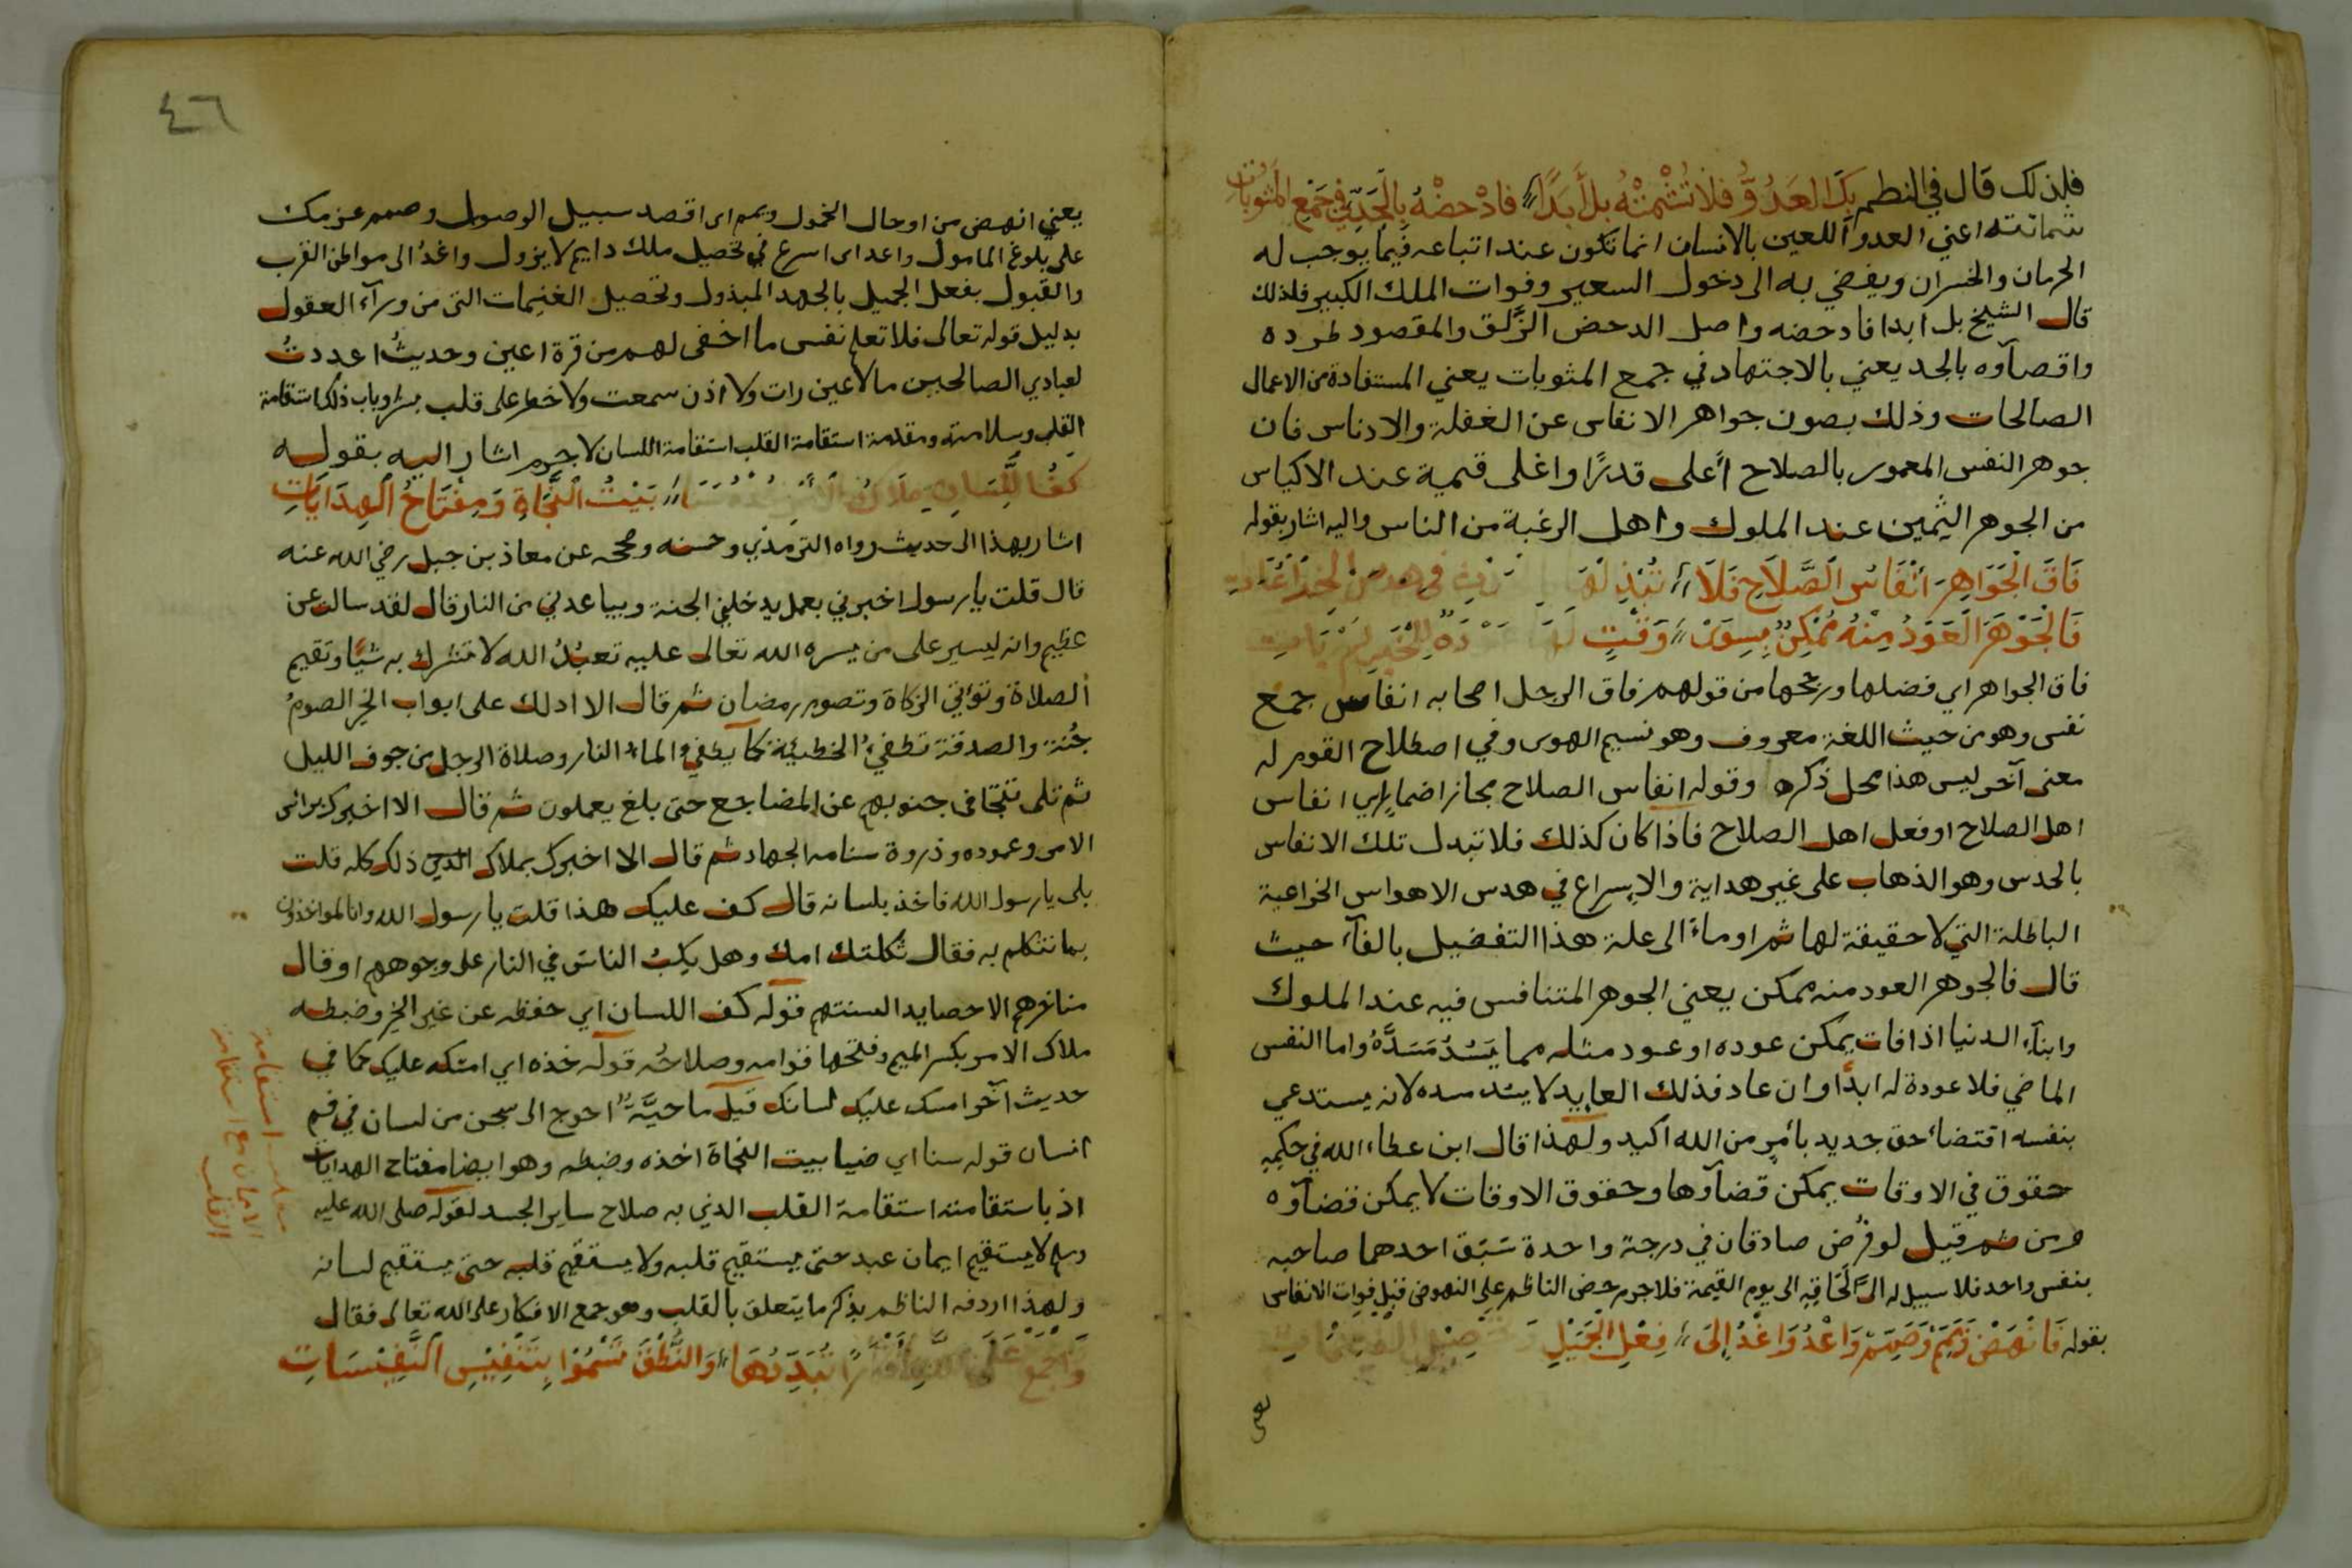 فلذلك قال في النظم بك العدو فلا تشمته بل أبدا فادحضه بالجد في جمع المثوبات
شماتته اعني العدو اللعين بالانسان انما تكون عند اتباعه فيما يوجب له
الحرمان والخسران ويفضي به الى دخول السعير وفوات الملك الكبير فلذلك
قال الشيخ بل ابدا فادحضه واصل الدحض الزلق والمقصود طرده
واقصاوه بالجد يعني بالاجتهاد في جمع المثوبات يعني المستفادة من الاعمال
الصالحات وذلك بصون جواهر الانفاس عن الغفلة والادناس فان
جوهر النفس المعمور بالصلاح أعلى قدرًا واغلى قيمة عند الاكياس
من الجوهر الثمين عند الملوك واهل الرغبة من الناس واليه اشار بقوله
فَاقَ الْجَوَاهِرَ أنْفَاسُ الصَّلَاحِ فَلَا في هدس
فَالْجَوْهَرَ الْعَوَدُ مِنْهُ مُمْكِنٌ بِسِوَى وَقْتٍ
فاق الجواهر اي فضلها ورجحها من قولهم فاق الرجل اصحابه انفاس جمع
نفس وهو من حيث اللغة معروف وهو نسيم الهوى وفي اصطلاح القوم له
معنى آخر ليس هذا محل ذكره وقوله انفاس الصلاح مجاز اضمار اي انفاس
اهل الصلاح او فعل اهل الصلاح فاذا كان كذلك فلا تبدل تلك الانفاس
بالحدس وهو الذهاب على غير هداية والاسراع في هدس الاهواس الخراعية
الباطلة التي لا حقيقة لها ثم اوماء الى علة هذا التفضيل بالفآء حيث
قال فالجوهر العود منه ممكن يعني الجوهر المتنافس فيه عند الملوك
وابنآء الدنيا اذا فات يمكن عوده او عود مثله مما يَسُدُ مَسَدَّهُ واما النفس
الماضي فلا عودة له ابدًا وان عاد فذلك العايد لا يسد مسده لانه يستدعي
بنفسه اقتضاء حق جديد بأمرٍ من الله اكيد ولهذا قال ابن عطاء الله في حكمه
حقوق في الاوقات يمكن قضآوها وحقوق الاوقات لا يمكن قضآوه
ومن ثم قيل لو فرض صادقان في درجة واحدة سَبَق احدهما صاحبه
بنفس واحد فلا سبيل له الى لَحَاقِهِ الى يوم القيمة فلا جرم حض الناظم على النهوض قبل فوات الانفاس
بقوله فَانْهَضْ وَيَمِّمْ وَصَمِّمْ وَاعْدُ وَاغْدُ إلَى فِعْلِ الْجَمِيْلِ
يعني
٤٦
يعني انهض من اوحال الخمول ويمم اى اقصد سبيل الوصول وصمم عزمك
على بلوغ المامول واعد اى اسرع في تحصيل ملك دايم لا يزول واغدُ الى مواطن القرب
والقبول بفعل الجميل بالجهد المبذول وتحصيل الغنيمات التى من ورآء العقول
بدليل قوله تعالى فلا تعلم نفس ما اخفى لهم من قرة اعين وحديثُ اعددتُ
لعبادي الصالحين ما لا عين رات ولا اذن سمعت ولا خطر على قلب بشر وباب ذلك استقامة
القلب وسلامته ومقدمة استقامة القلب استقامة اللسان لا جرم اشار اليه بقوله
كَفُّ اللِّسَانِ مِلَاكُ بَيْتُ النَّجَاةِ وَمِفْتَاحُ الْهِدَايَاتِ
اشار بهذا الى حديث رواه الترمذي وحسنه وصححه عن معاذ بن جبل رضي الله عنه
قال قلت يا رسول اخبرني بعمل يدخلني الجنة ويباعدني من النار قال لقد سالت عن
عظيم وانه ليسير على من يسره الله تعالى عليه تعبُدُ الله لا تشرك به شيًا وتقيم
الصلاة وتؤتي الزكاة وتصوم رمضان ثم قال الا ادلك على ابواب الخير الصومُ
جُنة والصدقة تطفيُ الخطيئة كما يطفي الماء النار وصلاة الرجل من جوف الليل
ثم تلى تتجافى جنوبهم عن المضاجع حتى بلغ يعملون ثم قال الا اخبرك براس
الامر وعموده وذروة سنامه الجهاد ثم قال الا اخبرك بملاك ذلك كله قلت
بلى يا رسول الله فاخذ بلسانه قال كف عليك هذا قلت يا رسول الله وانا لمواخذون
بما نتكلم به فقال ثكلتك امك وهل يكبُ الناسَ في النار على وجوههم او قال
مناخرهم الا حصايد السنتهم قوله كف اللسان اي حفظه عن غير الخير وضبطه
ملاك الامر بكسر الميم وفتحها قوامه وصلاحُه قوله خذه اي امسكه عليك كما في
حديث آخر امسك عليك لسانك قيل ما حيَّةٌ احوج الى سجن من لسان في فم
انسان قوله سنا اي ضيا بيت النجاة اخذه وضبطه وهو ايضا مفتاح الهدايات
اذ باستقامته استقامة القلب الذي به صلاح ساير الجسد لقوله صلى الله عليه
وسلم لا يستقيم ايمان عبد حتى يستقيم قلبه ولا يستقيم قلبه حتى يستقيم لسانه
ولهذا اردفه الناظم بذكر ما يتعلق بالقلب وهو جمع الافكار على الله تعالى فقال
وَاجْمَعْ عَلَى تُبَدِّدُهَا وَالنُّطْقَ بِتَنْفِيْسِ النَّفِيْسَاتِ
استقامة
الايمان مع استقامة
القلب